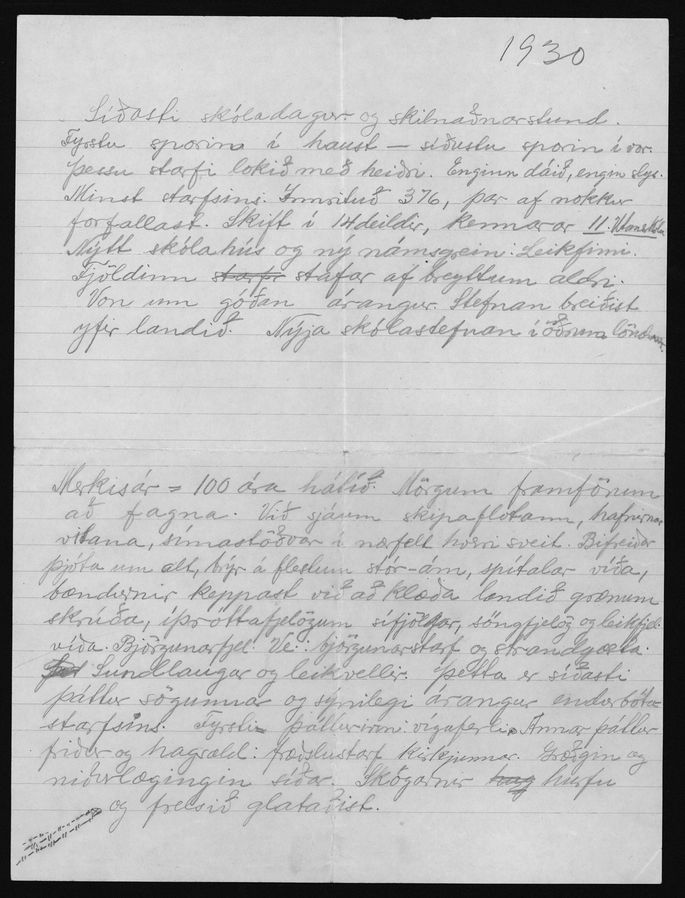 1930
Síðasti skóladagur og skilnaðarstund.
Fyrstu sporin í haust — síðustu sporin í vor.
Þessu starfi lokið með heiðri. Enginn dáið, engin slys.
Minst starfsins. Innrituð 376, þar af nokkur
forfallast. Skift í 14 deildir, kennarar 11.
Nýtt skólahús og ný námsgrein: Leikfimi.
Fjöldinn starfr stafar af breyttum aldri.
Von um góðan árangur. Stefnan breiðist
yfir landið. Nýja skólastefnan í öðrum löndum.
Merkisár = 100 ára hátíð. Mörgum framförum
að fagna. Við sjáum skipaflotann, hafnirnar
vitana, símastöðvar í nærfelt hverri sveit. Bifreiðar
þjóta um alt, brýr á flestum stór-ám, spítalar víða,
bændurnir keppast við að klæða landið grænum
skrúða, íþróttafjelögum sífjölgar, söngfjelög og leikfjel.
víða. Björgunarfjel. Ve.: björgunarstarf og strandgæsla.
Sundlaugar og leikvellir. Þetta er síðasti
þáttur sögunnar og sýnilegi árangur endurbóta-
starfsins. Fyrsti þátturinn: vígaferli. Annar þáttur
friður og hagsæld: fræðslustarf kirkjunnar. Græðgin og
niðurlægingin síðar. Skógarnir hurfu
og frelsið glataðist.